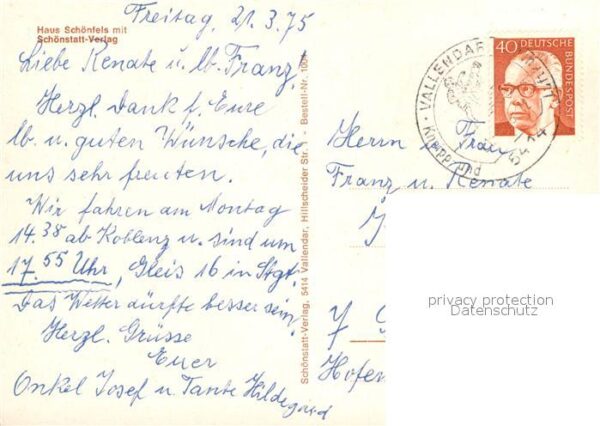 Freitag, 21.3.75
Haus Schönfels mit
Schönstatt-Verlag
Liebe Renate u. lb. Franz!
Herzl. Dank f. Eure
lb. u. guten Wünsche, die
uns sehr freuten.
Wir fahren am Montag
14.38 ab Koblenz u. sind um
17.55 Uhr, Gleis 16 in Stgt.
Das Wetter dürfte besser sein.
Herzl. Grüsse
Euer
Onkel Josef u. Tante Hildegard
Schönstatt-Verlag, 5414 Vallendar, Hillscheider Str. - Bestell-Nr.
VALLENDAR
5414
40 DEUTSCHE
BUNDESPOST
Herrn u.
Frau
Franz u. Renate
7
privacy protection
Datenschutz